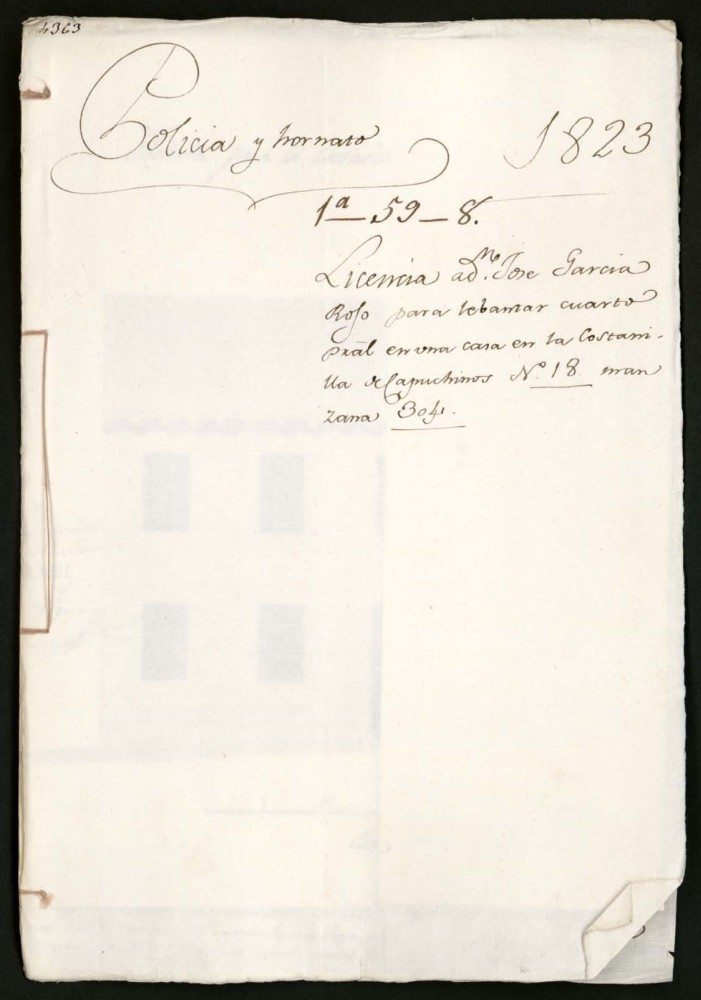 4363
Policia y hornato 1823
1ª 59-8.
Licencia a d.n Jose Garcia
Roso para lebantar cuarto
pral en una casa en la Costani-
lla de Capuchinos Nº 18 man
zana 304.